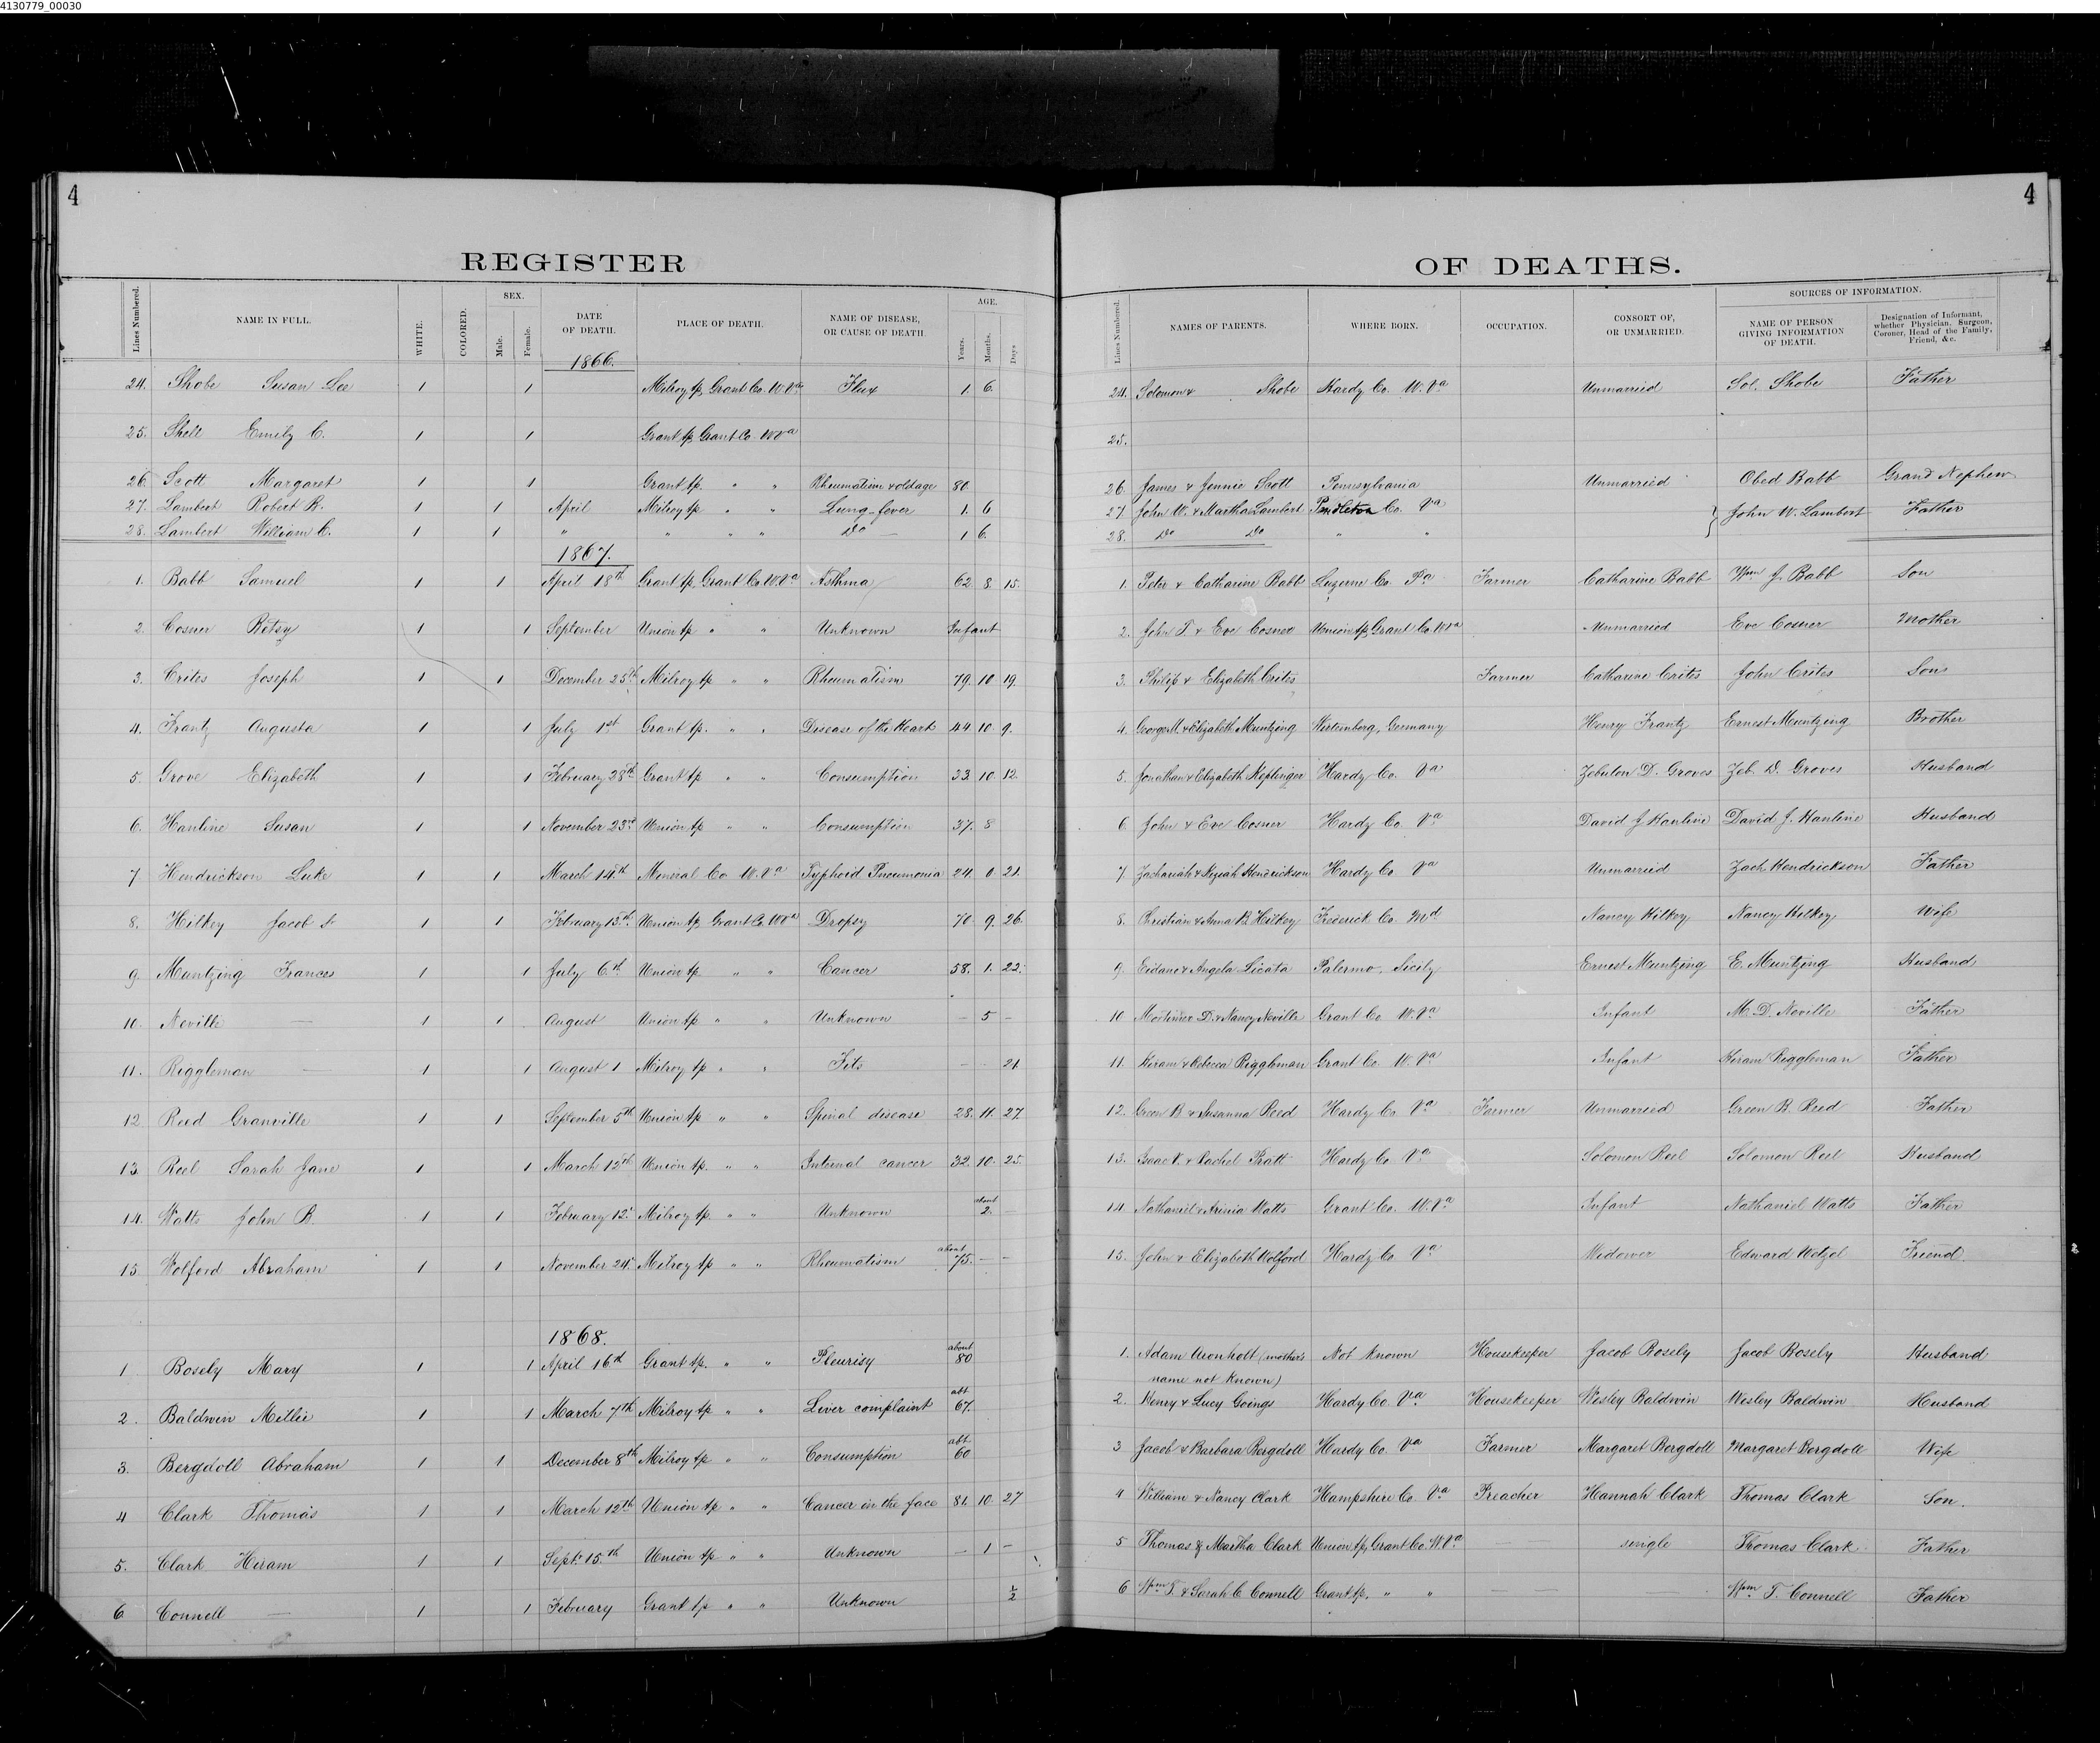 4130779_00030
4
4
REGISTER OF DEATHS.
Lines Numbered. NAME IN FULL. WHITE. COLORED. SEX. Male. Female. DATE OF DEATH. PLACE OF DEATH. NAME OF DISEASE, OR CAUSE OF DEATH. AGE. Years. Months. Days Lines Numbered. NAMES OF PARENTS. WHERE BORN. OCCUPATION. CONSORT OF, OR UNMARRIED. SOURCES OF INFORMATION. NAME OF PERSON GIVING INFORMATION OF DEATH. Designation of Informant, whether Physician, Surgeon, Coroner, Head of the Family, Friend, &c.
1866.
24. Shobe Susan Lee 1 1 Milroy tp, Grant Co. W.Va Flux 1. 6. 24. Solomon & Shobe Hardy Co. W. Va Unmarried Sol. Shobe Father
25. Shell Emily C. 1 1 Grant tp, Grant Co. W Va 25.
26. Scott Margaret 1 1 Grant tp. " " Rheumatism & old age 80. 26. James & Jennie Scott Pennsylvania Unmarried Obed Babb Grand Nephew
27. Lambert Robert R. 1 1 April Milroy tp " " Lung fever 1. 6 27. John W. & Martha Lambert Pendleton Co. Va } John W. Lambert Father
28. Lambert William C. 1 1 " " " " Do 1 6. 28. Do Do " "
1867.
1. Babb Samuel 1 1 April 18th Grant tp, Grant Co. W.Va Asthma 62. 8. 15. 1. Peter & Catharine Babb Luzerne Co. Pa Farmer Catharine Babb Wm J. Babb Son
2. Cosner Betsy 1 1 September Union tp " " Unknown Infant 2. John T. & Eve Cosner Union tp, Grant Co. W Va Unmarried Eve Cosner Mother
3. Crites Joseph 1 1 December 25th Milroy tp " " Rheumatism 79. 10. 19. 3. Philip & Elizabeth Crites Farmer Catharine Crites John Crites Son
4. Frantz Augusta 1 1 July 1st Grant tp. " " Disease of the Heart 44. 10. 9. 4. George M. & Elizabeth Muntzing Wirtemberg, Germany Henry Frantz Ernest Muntzing Brother
5. Grove Elizabeth 1 1 February 28th Grant tp " " Consumption 33. 10. 12. 5. Jonathan & Elizabeth Keplinger Hardy Co. Va Zebulon D. Groves Zeb. D. Groves Husband
6. Hanline Susan 1 1 November 23rd Union tp " " Consumption 37. 8 6 John & Eve Cosner Hardy Co. Va David J Hanline David J. Hanline Husband
7 Hendrickson Luke 1 1 March 14th Mineral Co W. Va Typhoid Pneumonia 24. 0. 21. 7. Zachariah & Keziah Hendrickson Hardy Co. Va Unmarried Zach Hendrickson Father
8. Hilkey Jacob S. 1 1 February 13th Union tp, Grant Co. W Va Dropsy 70. 9. 26. 8. Christian & Anna B. Hilkey Frederick Co. Md Nancy Hilkey Nancy Hilkey Wife
9. Muntzing Frances 1 1 July 6th Union tp " " Cancer 58. 1. 22. 9. & Angela Licata Palermo, Sicily Ernest Muntzing E. Muntzing Husband
10. Neville — 1 1 August Union tp " " Unknown — 5 — 10 Mortimer D. & Nancy Neville Grant Co. W. Va Infant M. D. Neville Father
11. Riggleman — 1 1 August 1 Milroy tp " " Fits — — 21. 11. Hiram & Rebecca Riggleman Grant Co. W. Va Infant Hiram Riggleman Father
12. Reed Granville 1 1 September 5th Union tp " " Spinal disease 28. 11. 27. 12. Green B. & Susanna Reed Hardy Co. Va Farmer Unmarried Green B. Reed Father
13. Reel Sarah Jane 1 1 March 12th Union tp. " " Internal cancer 32. 10. 25. 13. Isaac V. & Rachel Pratt Hardy Co. Va Solomon Reel Solomon Reel Husband
14. Watts John B. 1 1 February 12. Milroy tp. " " Unknown about 2. — 14. Nathaniel & Watts Grant Co. W. Va Infant Nathaniel Watts Father
15. Wolford Abraham 1 1 November 24. Milroy tp " " Rheumatism about 75. — — 15. John & Elizabeth Wolford Hardy Co. Va Widower Edward Wetzel Friend.
1868.
1 Bosely Mary 1 1 April 16th Grant tp. " " Pleurisy about 80 1. Adam Uronholt (mothers name not known) Not Known Housekeeper Jacob Bosely Jacob Bosely Husband
2. Baldwin Millie 1 1 March 7th Milroy tp " " Liver complaint abt. 67. 2. Henry & Lucy Goings Hardy Co. Va. Housekeeper Wesley Baldwin Wesley Baldwin Husband
3. Bergdoll Abraham 1 1 December 8th Milroy tp " " Consumption abt. 60 3 Jacob & Barbara Bergdoll Hardy Co. Va Farmer Margaret Bergdoll Margaret Bergdoll Wife
4 Clark Thomas 1 1 March 12th Union tp " " Cancer in the face 81. 10. 27 4 William & Nancy Clark Hampshire Co. Va Preacher Hannah Clark Thomas Clark Son.
5. Clark Hiram 1 1 Sept. 15th Union tp " " Unknown — 1 — 5 Thomas & Martha Clark Union tp, Grant Co. W. Va single Thomas Clark Father
6 Connell — 1 1 February Grant tp " " Unknown 1/2 6 Wm T. & Sarah C. Connell Grant tp. " " Wm T. Connell Father